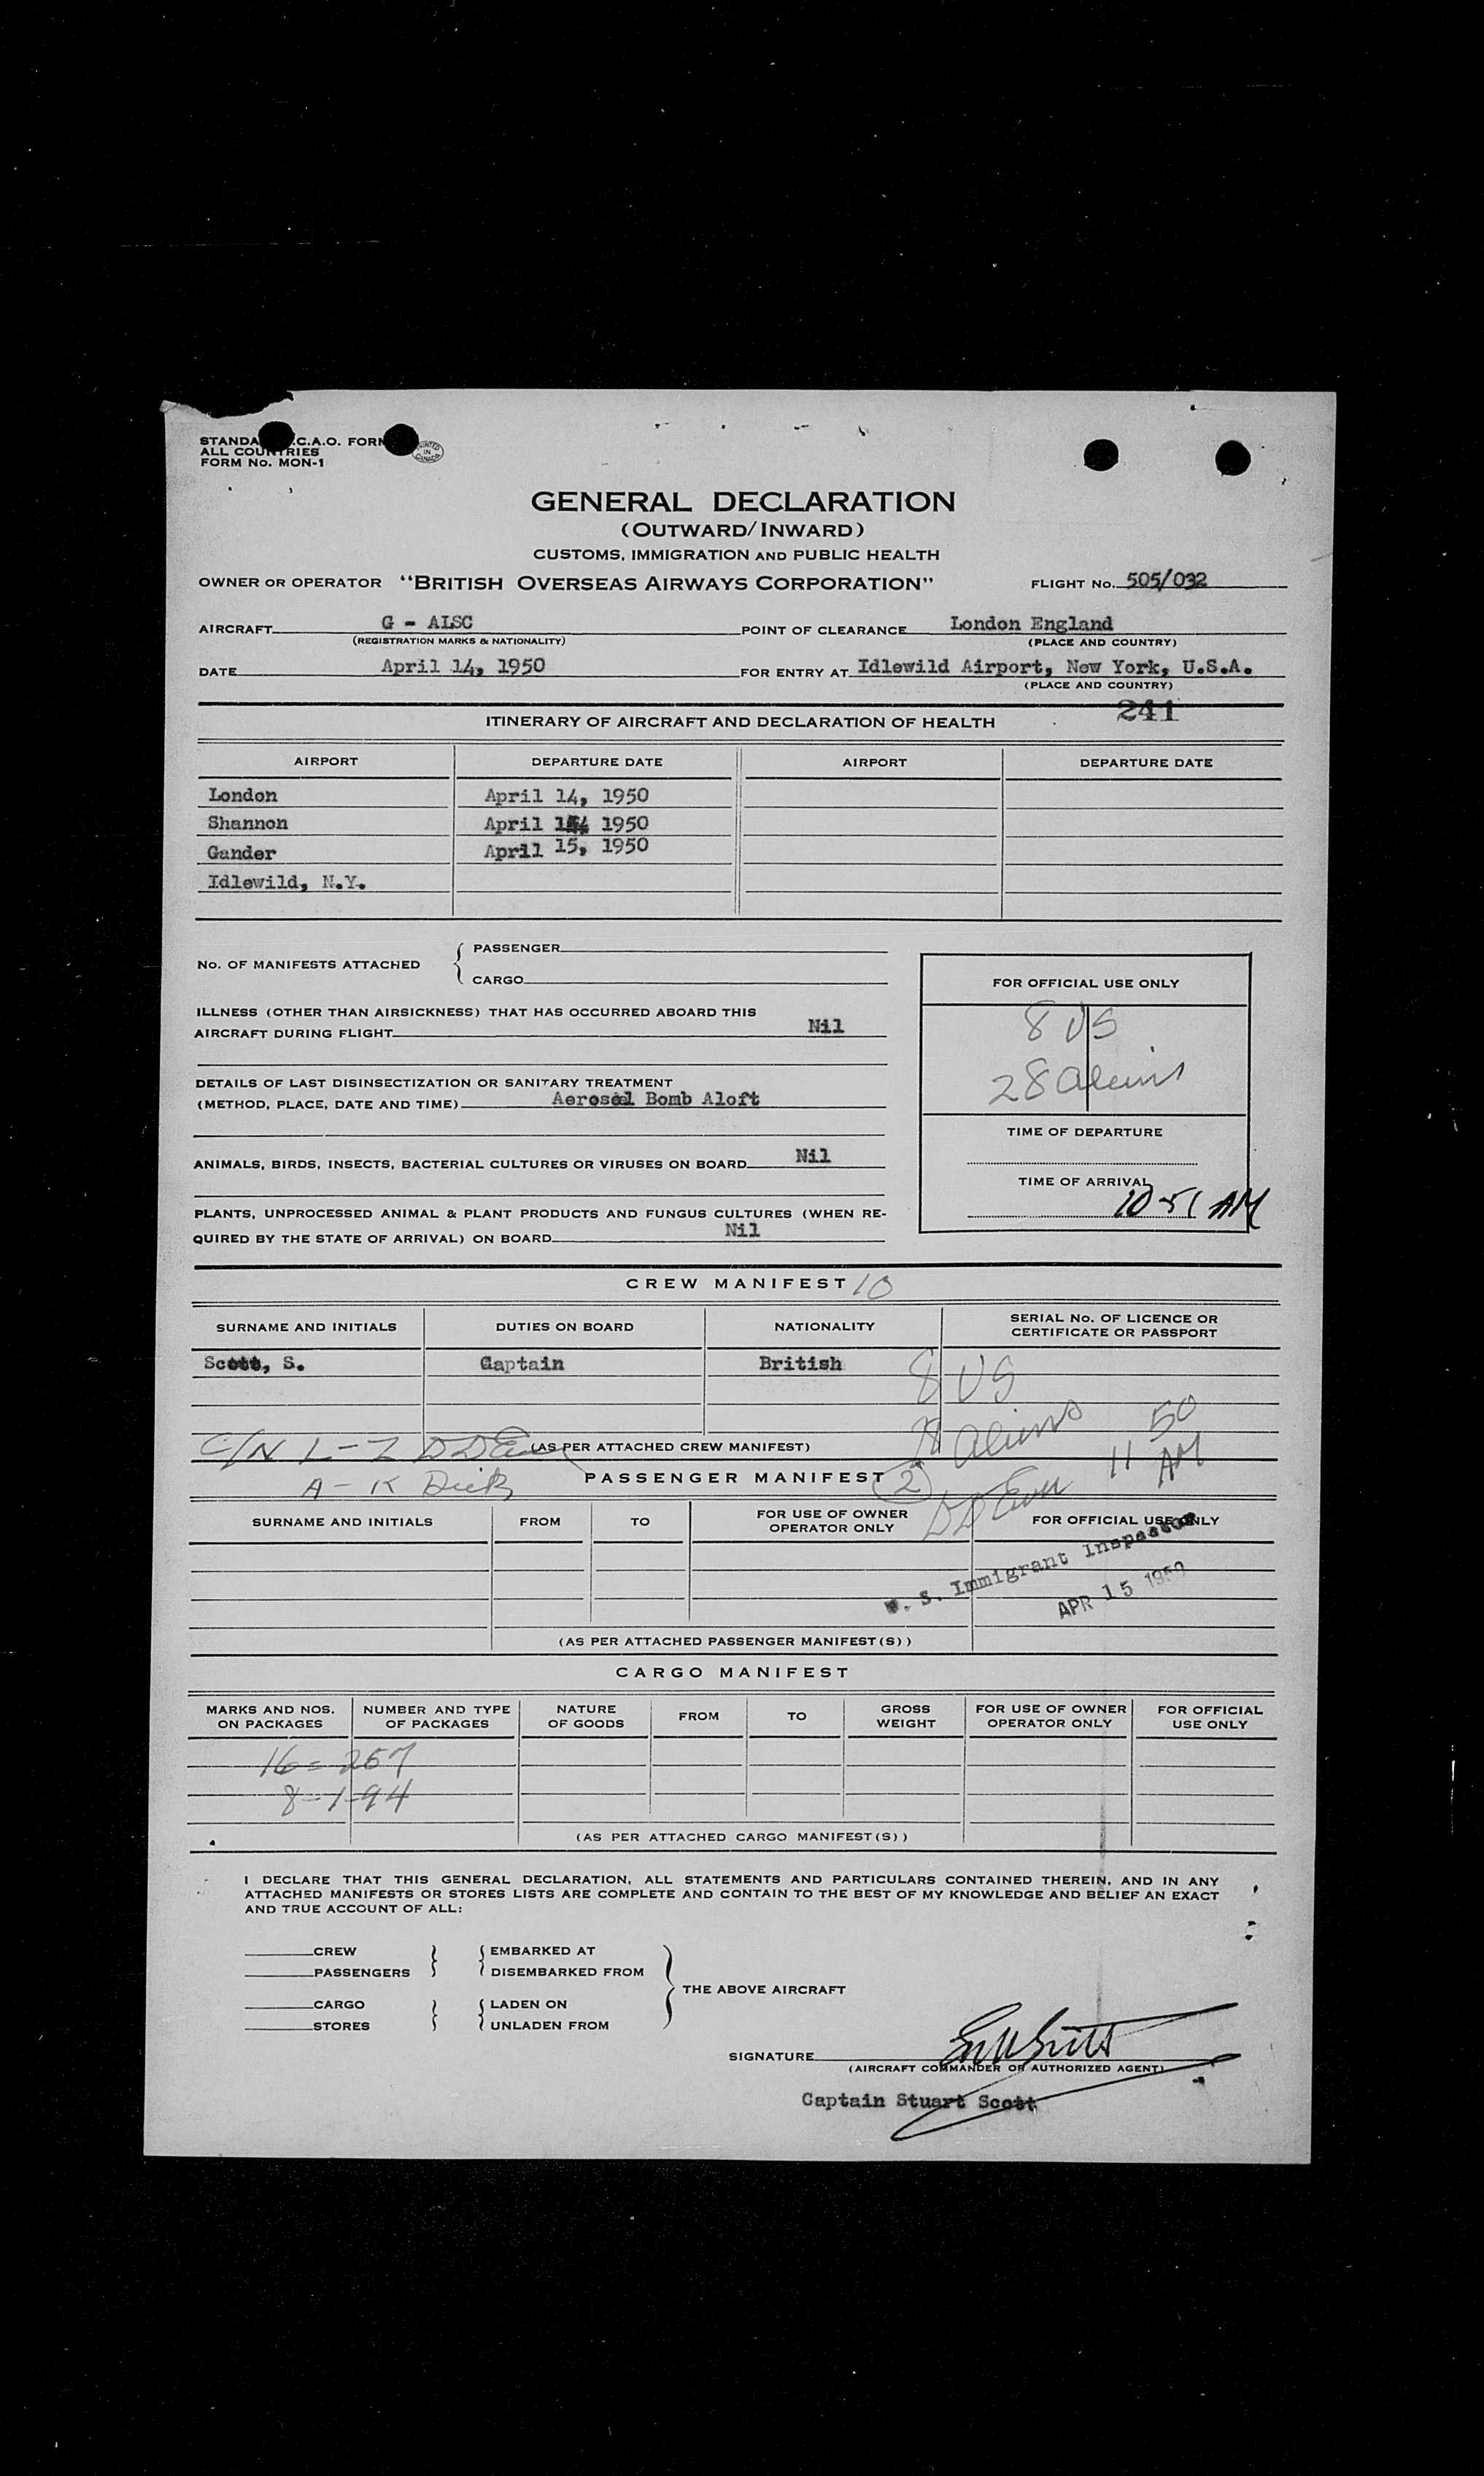 STANDA .C.A.O. FORM
ALL COUNTRIES
FORM No. MON-1
PRINTED IN CANADA
GENERAL DECLARATION
(OUTWARD/INWARD)
CUSTOMS, IMMIGRATION AND PUBLIC HEALTH
OWNER OR OPERATOR "BRITISH OVERSEAS AIRWAYS CORPORATION" FLIGHT No. 505/032
AIRCRAFT G - ALSC POINT OF CLEARANCE London England
(REGISTRATION MARKS & NATIONALITY) (PLACE AND COUNTRY)
DATE April 14, 1950 FOR ENTRY AT Idlewild Airport, New York, U.S.A.
(PLACE AND COUNTRY)
241
ITINERARY OF AIRCRAFT AND DECLARATION OF HEALTH
AIRPORT DEPARTURE DATE AIRPORT DEPARTURE DATE
London April 14, 1950
Shannon April 14, 1950
Gander April 15, 1950
Idlewild, N.Y.
No. OF MANIFESTS ATTACHED { PASSENGER
CARGO
FOR OFFICIAL USE ONLY
8 US
28 Aliens
ILLNESS (OTHER THAN AIRSICKNESS) THAT HAS OCCURRED ABOARD THIS
AIRCRAFT DURING FLIGHT Nil
DETAILS OF LAST DISINSECTIZATION OR SANITARY TREATMENT
(METHOD, PLACE, DATE AND TIME) Aerosol Bomb Aloft
TIME OF DEPARTURE
ANIMALS, BIRDS, INSECTS, BACTERIAL CULTURES OR VIRUSES ON BOARD Nil
TIME OF ARRIVAL
10 51 AM
PLANTS, UNPROCESSED ANIMAL & PLANT PRODUCTS AND FUNGUS CULTURES (WHEN RE-
QUIRED BY THE STATE OF ARRIVAL) ON BOARD Nil
CREW MANIFEST 10
SURNAME AND INITIALS DUTIES ON BOARD NATIONALITY SERIAL No. OF LICENCE OR
CERTIFICATE OR PASSPORT
Scott, S. Captain British
8 US
28 Aliens 11 50 AM
C/N L-Z DDEwen (AS PER ATTACHED CREW MANIFEST)
A-K Dick PASSENGER MANIFEST 2
DD Ewen
SURNAME AND INITIALS FROM TO FOR USE OF OWNER
OPERATOR ONLY FOR OFFICIAL USE ONLY
U. S. Immigrant Inspector
APR 15 1950
(AS PER ATTACHED PASSENGER MANIFEST(S))
CARGO MANIFEST
MARKS AND NOS.
ON PACKAGES NUMBER AND TYPE
OF PACKAGES NATURE
OF GOODS FROM TO GROSS
WEIGHT FOR USE OF OWNER
OPERATOR ONLY FOR OFFICIAL
USE ONLY
16 = 267
8 - 194
(AS PER ATTACHED CARGO MANIFEST(S))
I DECLARE THAT THIS GENERAL DECLARATION, ALL STATEMENTS AND PARTICULARS CONTAINED THEREIN, AND IN ANY
ATTACHED MANIFESTS OR STORES LISTS ARE COMPLETE AND CONTAIN TO THE BEST OF MY KNOWLEDGE AND BELIEF AN EXACT
AND TRUE ACCOUNT OF ALL:
CREW EMBARKED AT
PASSENGERS DISEMBARKED FROM
THE ABOVE AIRCRAFT
CARGO LADEN ON
STORES UNLADEN FROM
SIGNATURE
(AIRCRAFT COMMANDER OR AUTHORIZED AGENT)
Captain Stuart Scott